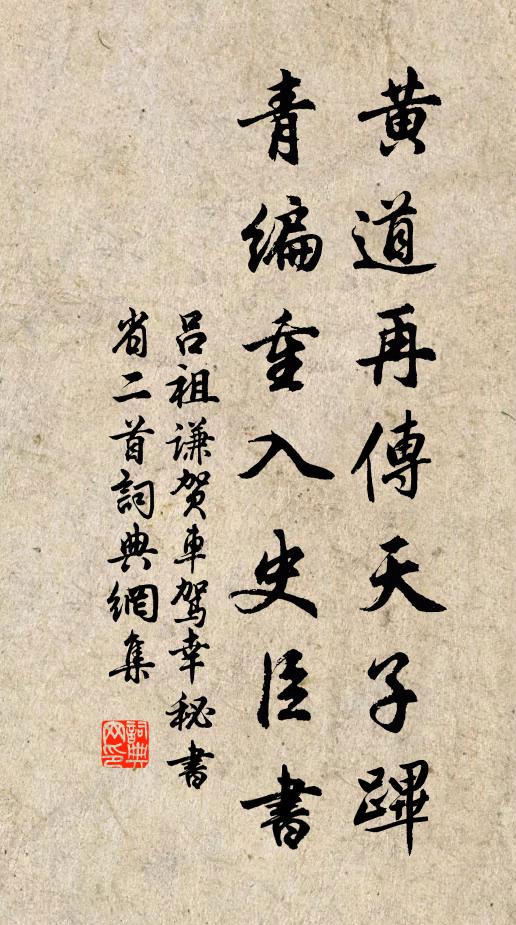 黄道再傳天子蹕
青編重入史臣書
呂祖謙賀車駕幸秘書
省二首詞典網集
詞典网印